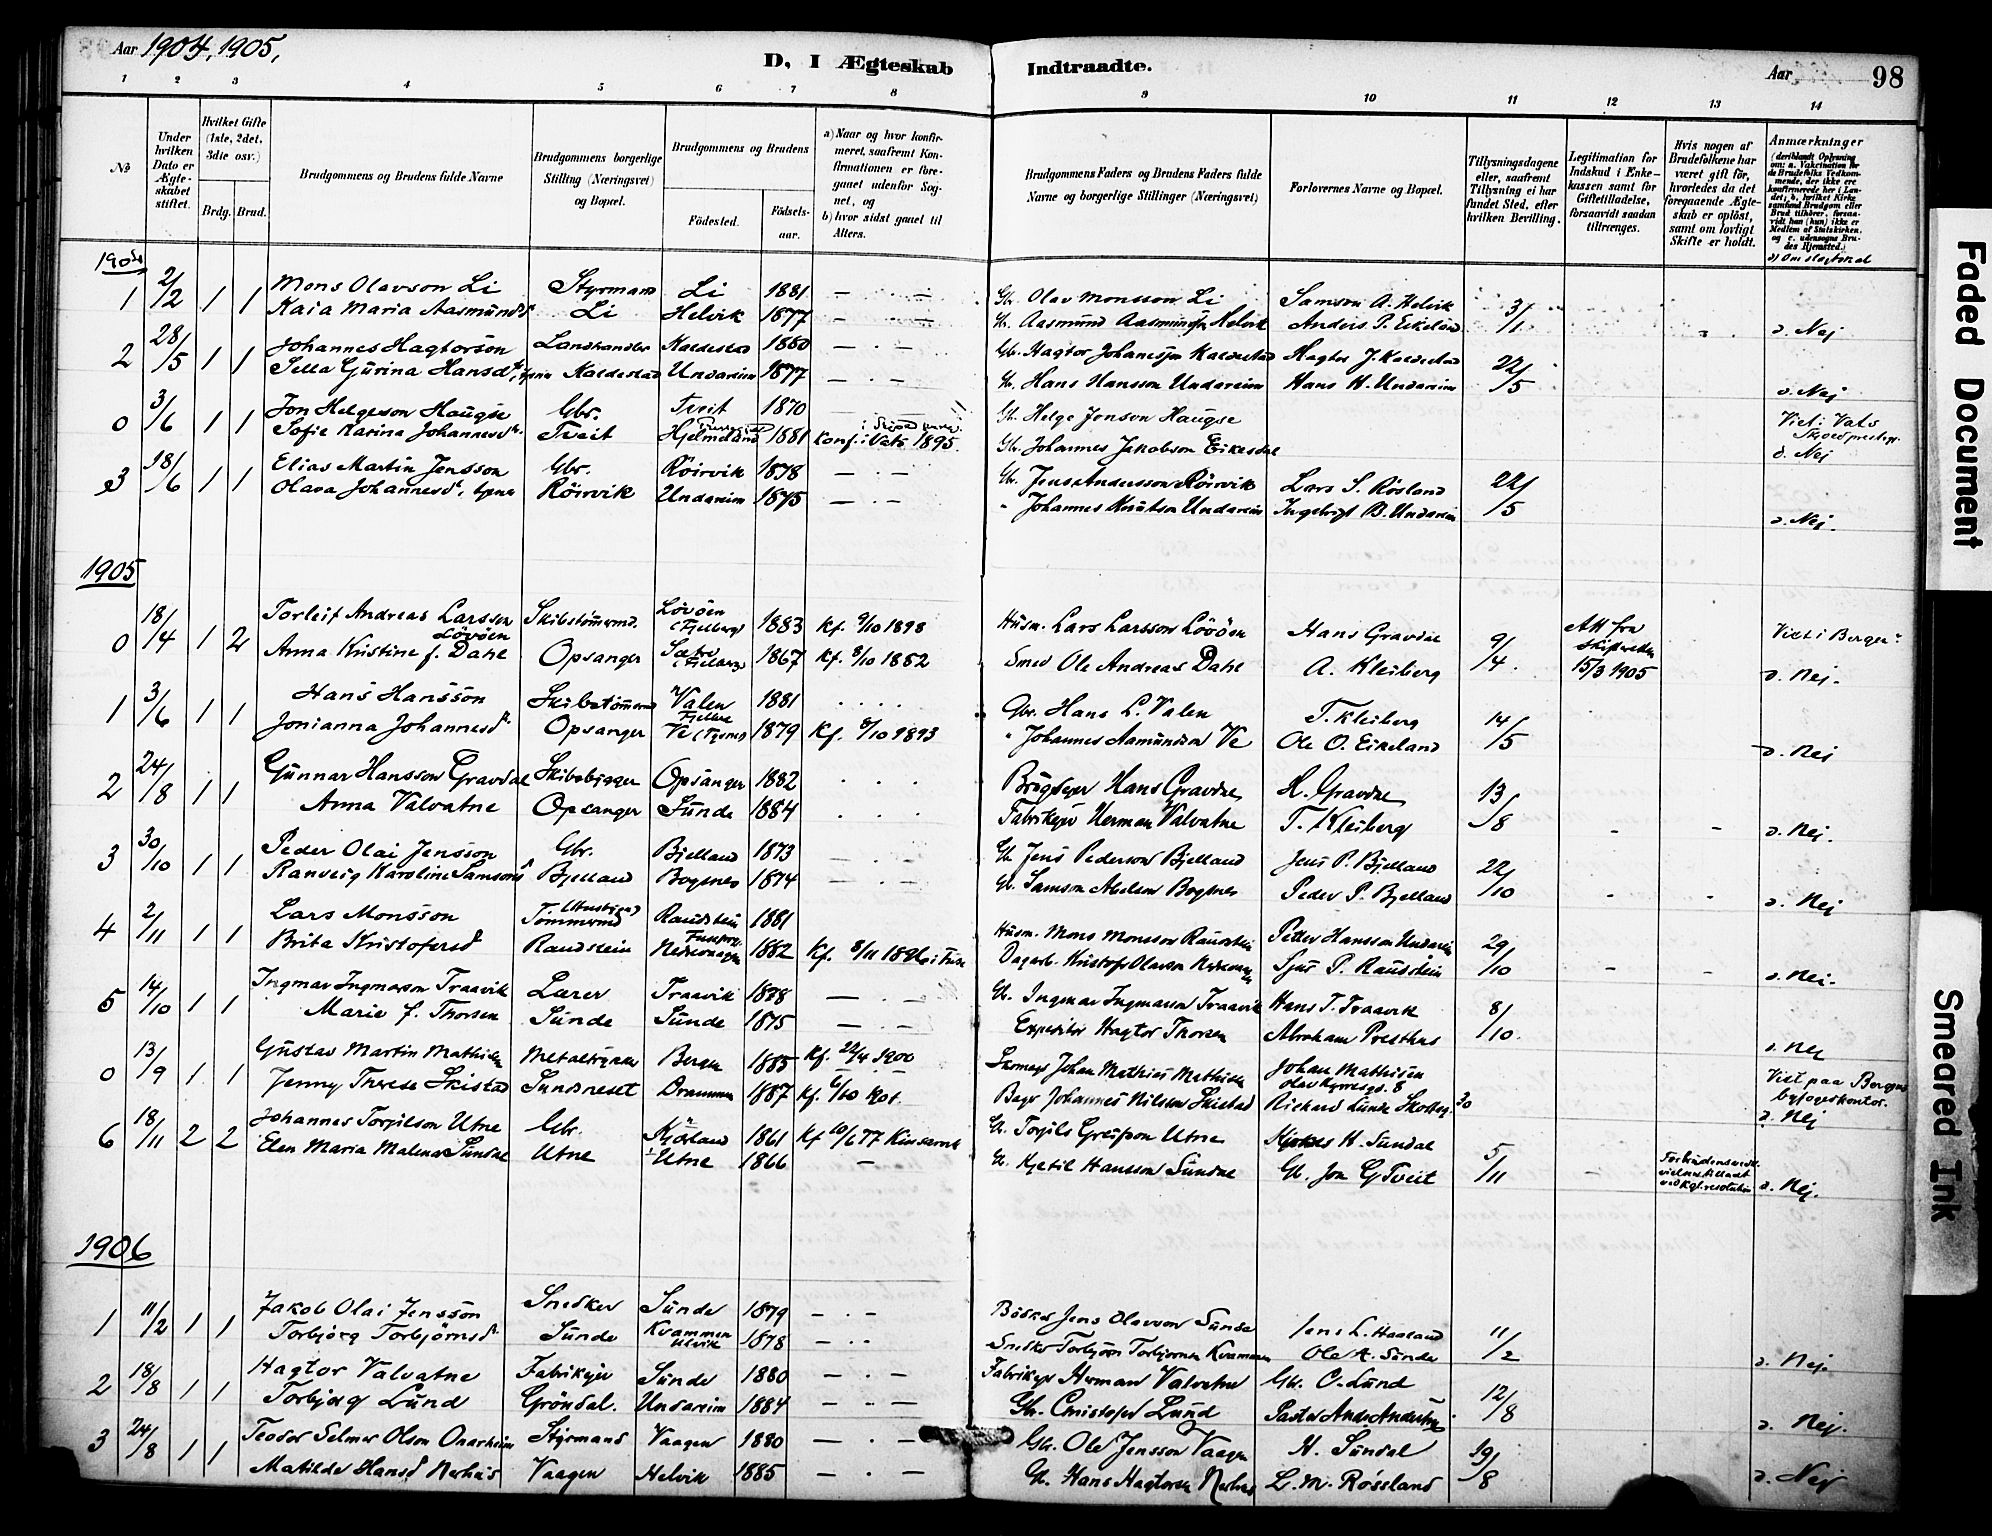 Aar 1904, 1905,
D, I Ægteskab Indtraadte.
Aar 98
1 2 3 4 5 6 7 8 9 10 11 12 13 14
No
Under hvilken Dato er Ægteskabet stiftet.
Hvilket Gifte (1ste, 2det, 3die osv.)
Brdg. Brud.
Brudgommens og Brudens fulde Navne
Brudgommens borgerlige Stilling (Næringsvei) og Bopæl.
Brudgommens og Brudens
Fødested.
Fødselsaar.
a) Naar og hvor konfirmeret, saafremt Konfirmationen er foregaaet udenfor Sognet, og
b) hvor sidst gaaet til Alters.
Brudgommens Faders og Brudens Faders fulde Navne og borgerlige Stillinger (Næringsvei)
Forlovernes Navne og Bopæl.
Tillysningsdagene eller, saafremt Tillysning ei har fundet Sted, efter hvilken Bevilling.
Legitimation for Indskud i Enkekassen samt for Giftetilladelse, forsaavidt saadan tiltrænges.
Hvis nogen af Brudefolkene har været gift før, hvorledes da det foregaaende Ægteskab er opløst, samt om lovligt Skifte er holdt.
Anmærkninger
(deriblandt Oplysning om: a. Vakcination for de Brudefolks Vedkommende, der ikke ere konfirmerede her i Landet; b. hvilket Kirkesamfund Brudgom eller Brud tilhører, forsaavidt han (hun) ikke er Medlem af Statskirken, og c. udensogns Brudes Hjemsted.)
1904
1 2/2 1 1 Mons Olavson Li Styrmand Li 1881 Gbr. Olav Monsson Li Samson A. Helvik 3/1
Kaia Maria Aasmundsd. Li Helvik 1877 Gbr. Aasmund Aasmundsen Helvik Anders P. Eikeland d. Nej
2 28/5 1 1 Johannes Hagtorson Landhandler Kaldestad 1880 Gbr. Hagtor Johanesson Kaldestad Hagtor J. Kaldestad 22/5
Sella Gurina Hansdtr. Kaldestad Undareim 1877 Gbr. Hans Hansson Undareim Hans H. Undareim d. Nej
0 3/6 1 1 Jon Helgeson Haugse Gbr. Tveit 1870 Gbr. Helge Jonson Haugse Viet i Vats
Sofie Karina Johannesdtr. Tveit Hjelmeland 1881 Konf. i Vats 1895. Gbr. Johannes Jakobson Eikesdal d. Nej
3 18/6 1 1 Elias Martin Jensson Gbr. Röirvik 1878 Gbr. Jens Andersson Röirvik Lars S. Røsland 22/5
Olava Johannesd. Röirvik Undareim 1875 " Johannes Knutson Undareim Ingebrigt B. Undareim d. Nej.
1905
0 18/4 1 2 Torleif Andreas Larsson Lövöen Skibstømmermd. Lövöen (Fjelberg) 1883 Kf. 9/10 1898 Husm. Lars Larsson Lövöen Hans Gravdal 9/4 Att fra Skifteretten 15/3 1905 Viet i Bergen
Anna Kristine f. Dahl Opsanger Sætre (Fjelberg) 1867 Kf. 8/10 1882 Smed Ole Andreas Dahl A. Kleiberg d. Nej.
1 3/6 1 1 Hans Hansson Skibstømmermd Valen Fjelberg 1881 Gbr. Hans L. Valen T. Kleiberg 14/5
Jonianna Johannesdtr. Opsanger Ve (Tysnes) 1879 Kf. 8/10 1893 " Johannes Aamundson Ve Ole O. Eikeland d. Nej
2 24/8 1 1 Gunnar Hansson Gravdal Skibsbygger Opsanger 1882 Hans Gravdal H. Gravdal 13/8
Anna Valvatne Opsanger Sunde 1884 Fabrikeier Herman Valvatne T. Kleiberg d. Nej.
3 30/10 1 1 Peder Olai Jensson Gbr. Bjelland 1873 Gbr. Jens Pederson Bjelland Jens P. Bjelland 22/10
Ranveig Karoline Samsonsd. Bjelland Bogsnes 1874 Gbr. Samson Bogsnes Peder P. Bjelland d. Nej
4 2/11 1 1 Lars Monsson Tømmermd Raudstein 1881 Husm. Mons Monsson Raudstein Petter Hansson Undareim 29/10
Brita Kristofersd. Raudstein 1882 Kf. 8/11 1896 Kristofer Olavson Sjur P. Raudstein d. Nej.
5 14/10 1 1 Ingmar Ingmarson Traavik Lærer Traavik 1878 Gbr. Ingmar Ingmarson Traavik Hans T. Traavik 8/10
Marie f. Thorsen Sunde Sunde 1875 Expeditør Hagtor Thorsen Abraham Presthus d. Nej
0 13/9 1 1 Gustav Martin Mathisen Bergen 1885 Kf. 22/4 1900 Skomager Johan Mathias Mathisen Johan Mathisen Viet paa Bergens byfogeskontor.
Jenny Therese Skistad Sundneset Drammen 1887 Kf. 6/10 1901. Johannes Nilsson Skistad Richard Lunde d. Nej
6 18/11 2 2 Johannes Torgilson Utne Gbr. 1861 Kf 10/6 77 Kinsarvik Gbr. Torgils Utne H. Sundal 5/11
Elen Maria Malena Sundal Utne Utne 1866 Gbr. Kjetil Hansson Sundal Gbr. Jon G Tveit d. Nej.
1906
1 11/2 1 1 Jakob Olai Jensson Snedker Sunde 1879 Bødker Jens Olavson Sunde Jens L. Haaland 11/2
Torbjörg Torbjörnsd. Sunde Kvammen Ulvik 1878 Snedker Torbjörn Torbjörnsen Kvammen Ole A. Sunde d. Nej.
2 18/8 1 1 Hagtor Valvatne Fabrikeier Sunde 1880 Fabrikeier Herman Valvatne Gbr. O. Lund 12/8
Torbjörg Lund Gröndal. Undareim 1884 Gbr. Christofer Lund Pastor d. Nej.
3 24/8 1 1 Teodor Selmer Olson Onarheim Styrmand Vaagen 1880 Gbr. Ole Jensson Vaagen H. Sundal 19/8
Matilde Hansd Nerhus Vaagen Helvik 1885 Gbr. Hans Hagtorsen Nerhus L. M. Røssland d. Nej
Faded Document
Smeared Ink